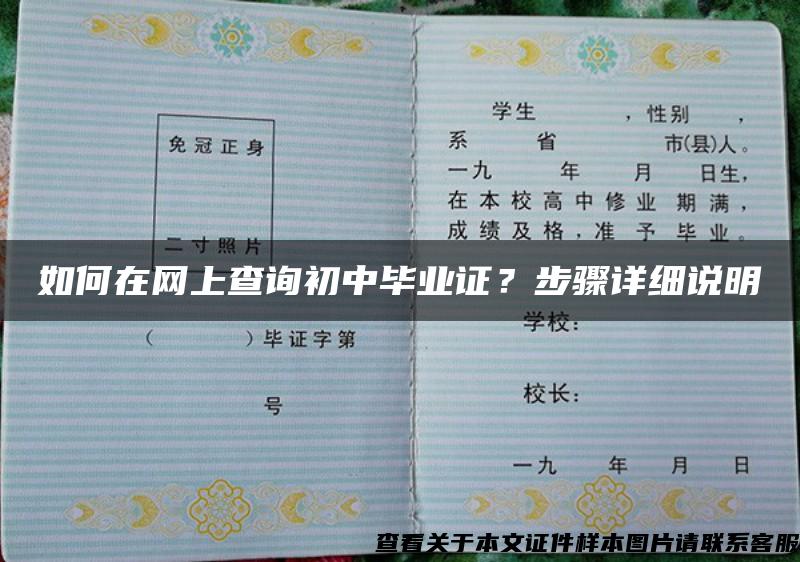 免冠正身
二寸照片
( )毕证字第
号
学生 ,性别 ,
系 省 市(县)人。
一九 年 月 日生,
在本校高中修业 期满,
成绩及格,准予毕业。
学校:
校长:
一九 年 月 日
如何在网上查询初中毕业证?步骤详细说明
查看关于本文证件样本图片请联系客服